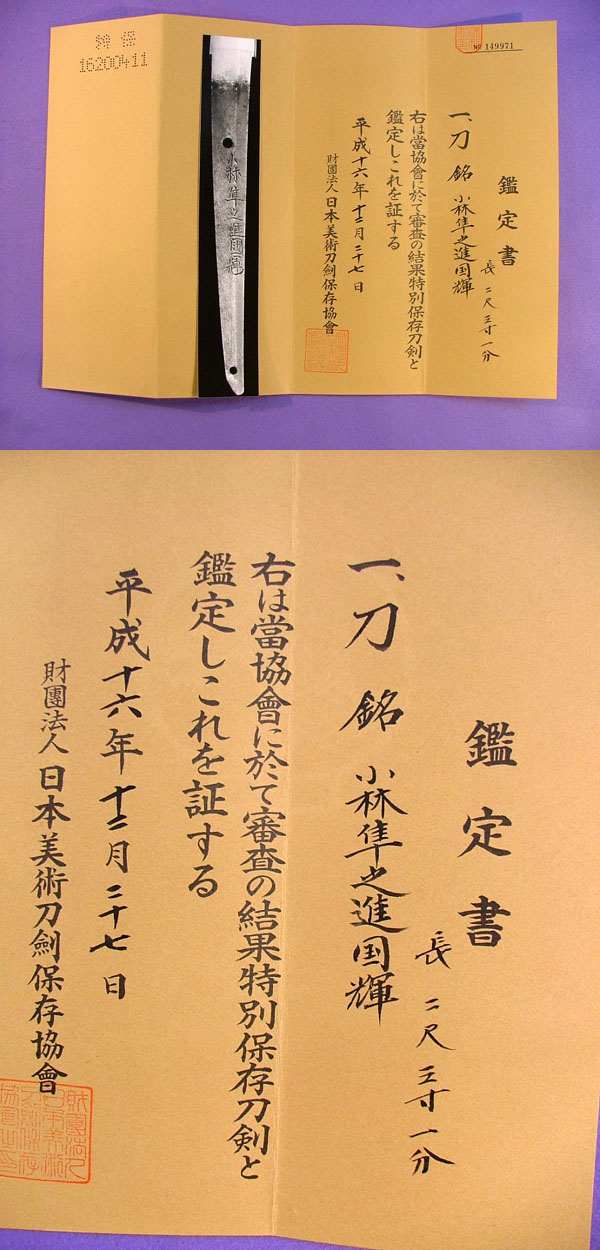 特保
16200411
小林隼之進国輝
№ 149971
鑑定書
長 二尺三寸一分
一、刀 銘 小林隼之進国輝
右は當協會に於て審査の結果特別保存刀剣と
鑑定しこれを証する
平成十六年十二月二十七日
財團法人日本美術刀劍保存協會
鑑定書
長 二尺三寸一分
一、刀 銘 小林隼之進国輝
右は當協會に於て審査の結果特別保存刀剣と
鑑定しこれを証する
平成十六年十二月二十七日
財團法人日本美術刀劍保存協會